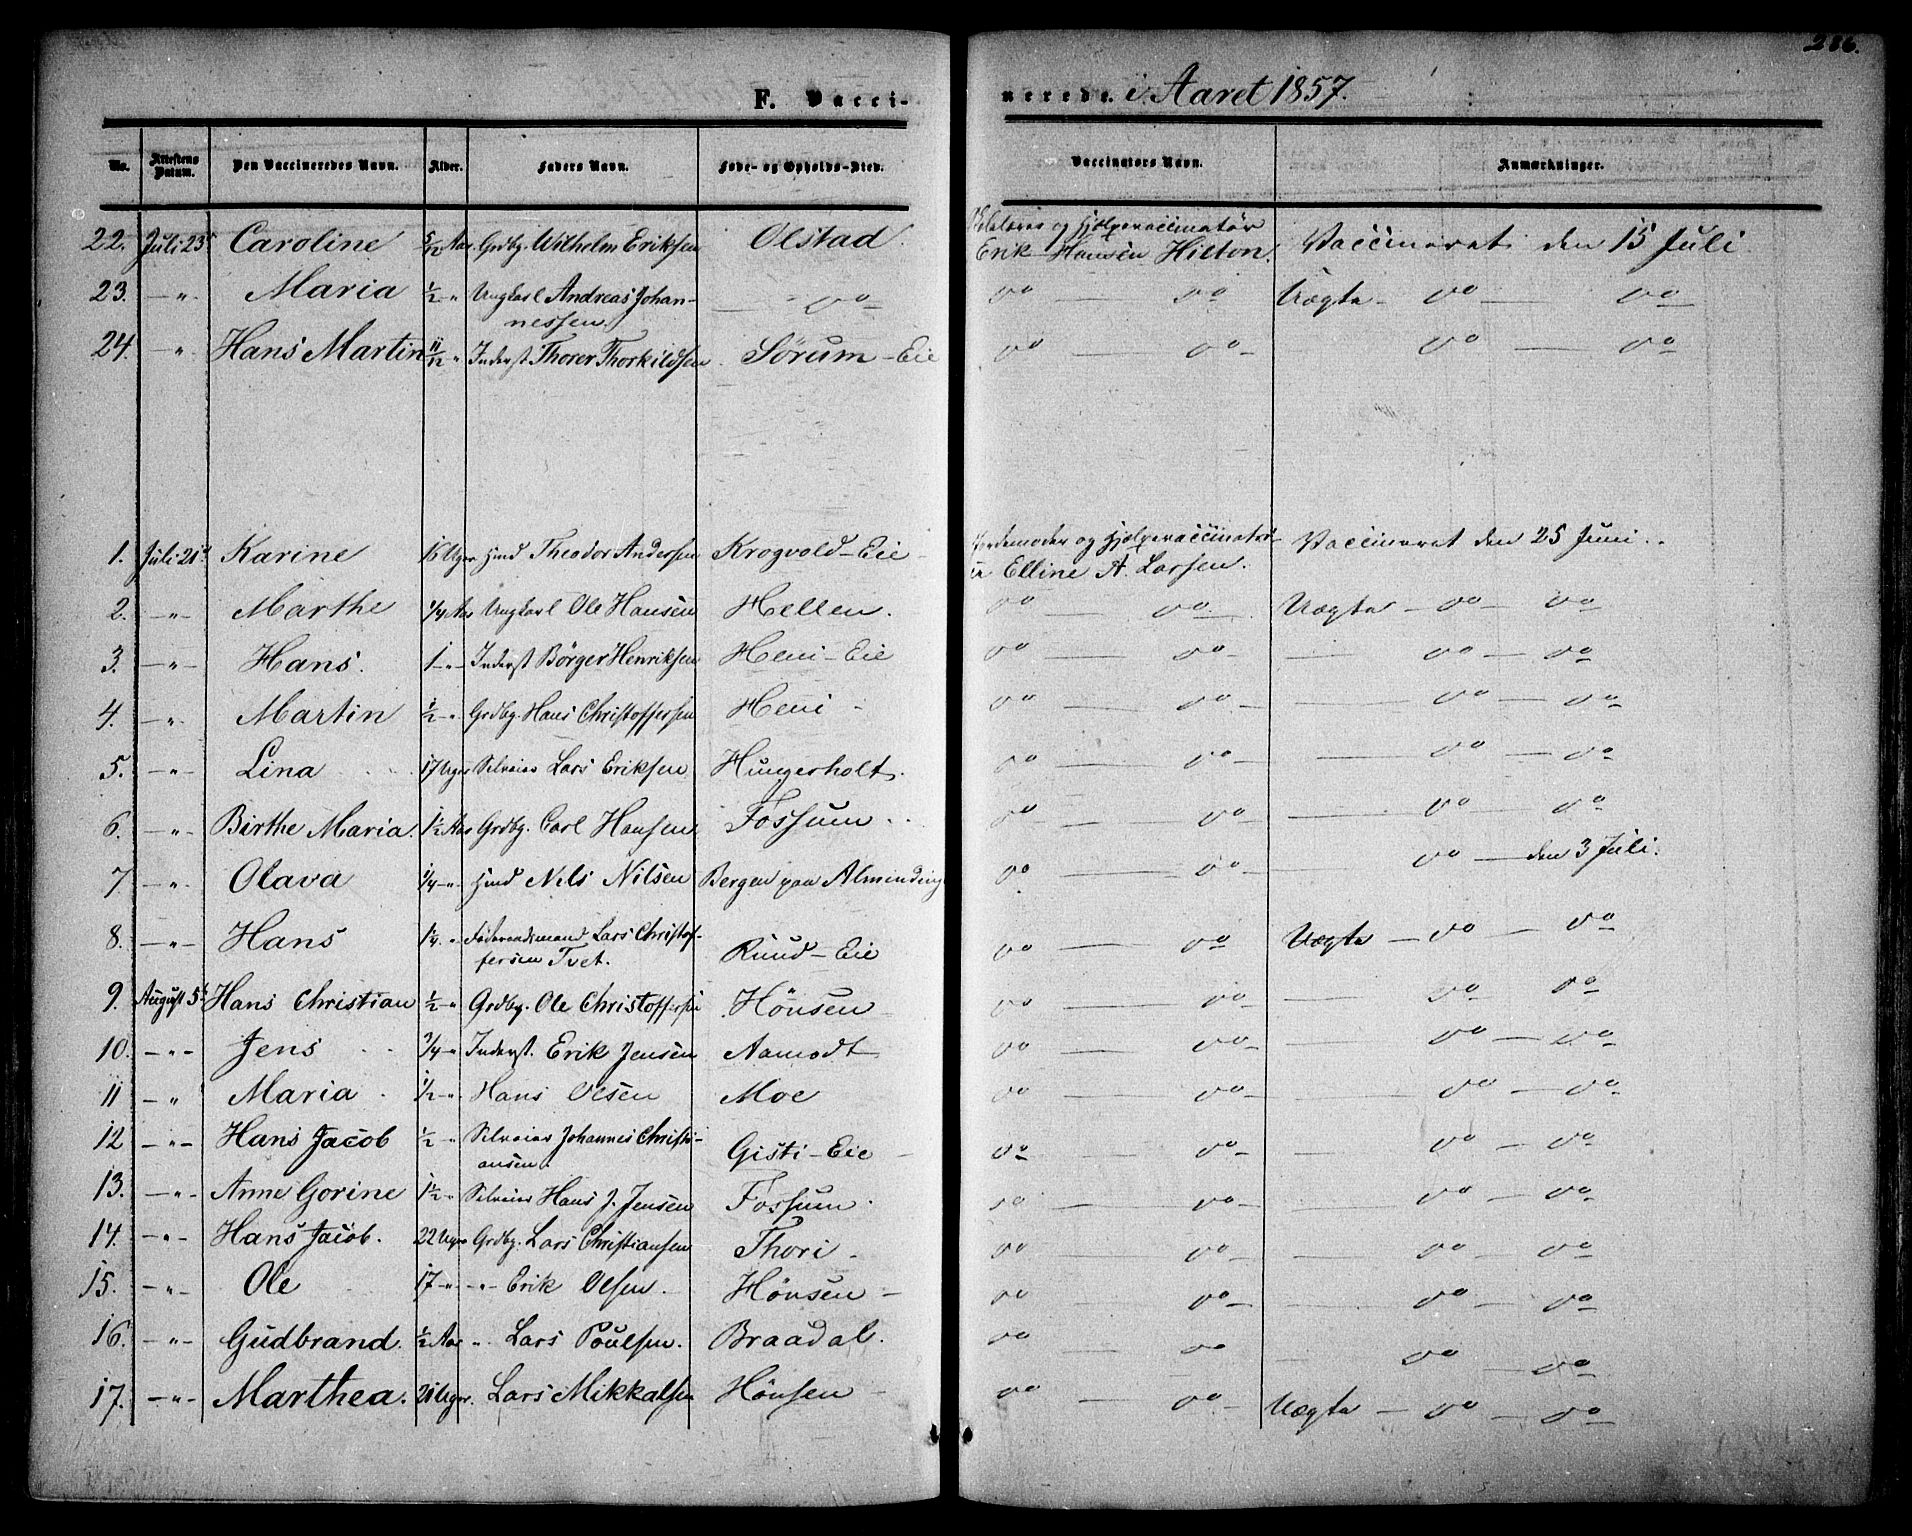 286.
F. Vacci- nerede. i Aaret 1857.
No. Attestens Datum. Den Vaccineredes Navn. Alder. Faders Navn. Føde- og Opholds-Sted. Vaccinators Navn. Anmærkninger.
22. Juli 23 Caroline 5/12 Aar Grdbg. Wilhelm Eriksen Olstad og Hjælpevaccinatør Erik Hansen Hilton. Vaccineret den 15 Juli
23. -"- Maria 1/2 -"- Ungkarl Andreas Johan-
nessen. -do- do — do Uægte — do — do
24. " Hans Martin 11/12 " Inderst Thorer Thorkildsen Sørum-Eie do — do — do — do
1. Juli 21 Karine 15 Uger Hmd Theodor Andersen Krogvold-Eie Jordemoder og Hjælpevaccinatør- Vaccineret den 25 Juni.
Elline A. Larsen.
2. -"- Marthe 1/4 Aar Ungkarl Ole Hansen Hellen. do — do. Uægte — do — do
3. -"- Hans. 1 -"- Inderst Börger Henriksen Heni-Eie do — do — do — do
4. -"- Martin 1/2 -"- Grdbg. Hans Christoffersen Heni - do — do — do — do
5. -"- Lina 17 Uger Selveier Lars Eriksen Hungerholt. do — do — do — do
6. -"- Birthe Maria. 1 1/2 Aar Grdbg. Carl Hansen Fossum do — do — do — do
7 -"- Olava 1/4 -"- Hmd Nels Nilsen Bergen paa Alminding do — do — do — den 3 Juli.
8. -"- Hans 1/4 -"- Föderaadsmand Lars Christof-
fersen Tvet. Ruud-Eie do — do Uægte — do — do
9. August 5 Hans Christian 1/2 -"- Grdbg. Ole Christoffersen Hönsen do — do — do — do
10. -"- Jens 3/4 -"- Inderst. Erik Jensen Aamodt do — do — do — do
11 -"- Maria 1/2 -"- Hans Olsen Moe do — do — do — do
12 -"- Hans Jacob 1/2 -"- Selveier Johannes Christi-
ansen. Gisti-Eie do — do — do — do
13. -"- Anne Gorine 1 1/2 -"- Selveier Hans J. Jensen Fossum do — do — do — do
14. -"- Hans Jacob. 22 Uger Grdbg. Lars Christiansen Thori - do — do — do — do
15. -"- Ole 17 -"- -"- Erik Olsen. Hönsen - do — do — do — do
16. -"- Gudbrand. 1/2 Aar " Lars Poulsen. Braadal. do — do — do — do
17. -"- Marthea. 21 Uger. Lars Mikkalsen Hönsen - do — do Uægte — do — do